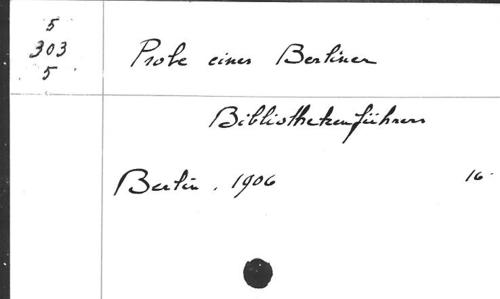 5
303
5
Probe eines Berliner
Bibliothekenführers
Berlin. 1906
16.